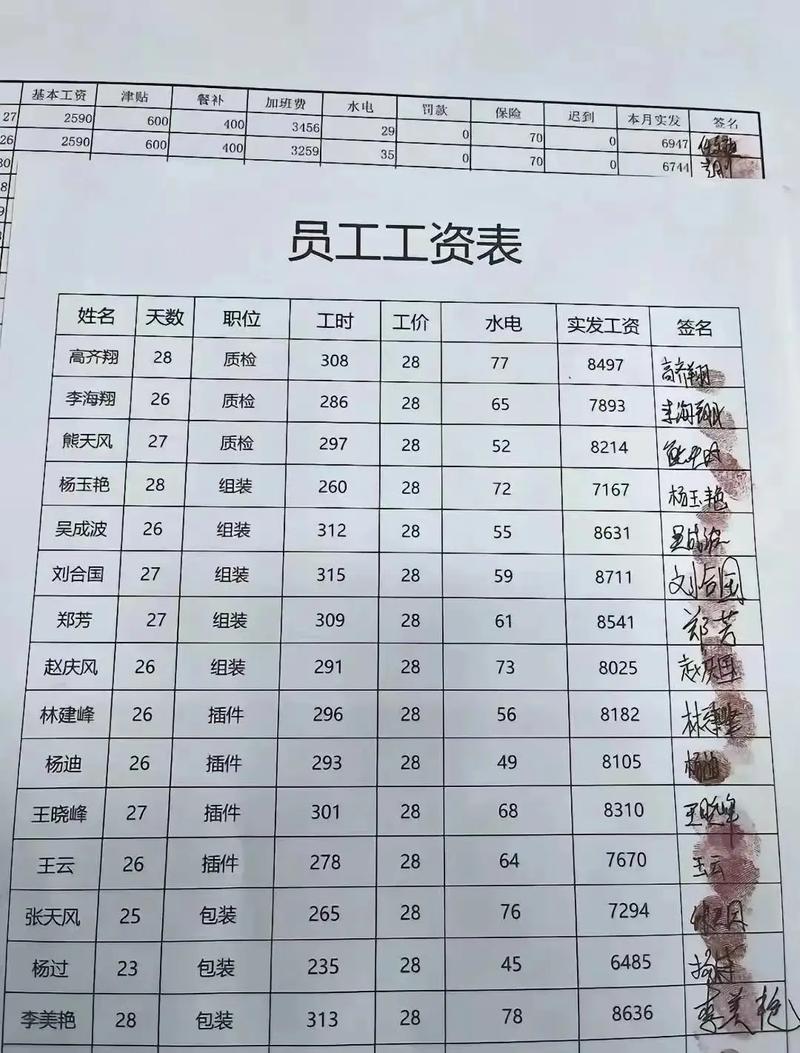 基本工资 津贴 餐补 加班费 水电 罚款 保险 迟到 本月实发 签名
27 2590 600 400 3456 29 0 70 0 6947
26 2590 600 400 3259 35 0 70 0 6744
30
员工工资表
姓名 天数 职位 工时 工价 水电 实发工资 签名
高齐翔 28 质检 308 28 77 8497 高齐翔
李海翔 26 质检 286 28 65 7893 李海翔
熊天风 27 质检 297 28 52 8214
杨玉艳 28 组装 260 28 72 7167 杨玉艳
吴成波 26 组装 312 28 55 8631 吴成波
刘合国 27 组装 315 28 59 8711 刘合国
郑芳 27 组装 309 28 61 8541 郑芳
赵庆风 26 组装 291 28 73 8025
林建峰 26 插件 296 28 56 8182
杨迪 26 插件 293 28 49 8105 杨迪
王晓峰 27 插件 301 28 68 8310 王晓峰
王云 26 插件 278 28 64 7670 王云
张天风 25 包装 265 28 76 7294
杨过 23 包装 235 28 45 6485
李美艳 28 包装 313 28 78 8636 李美艳